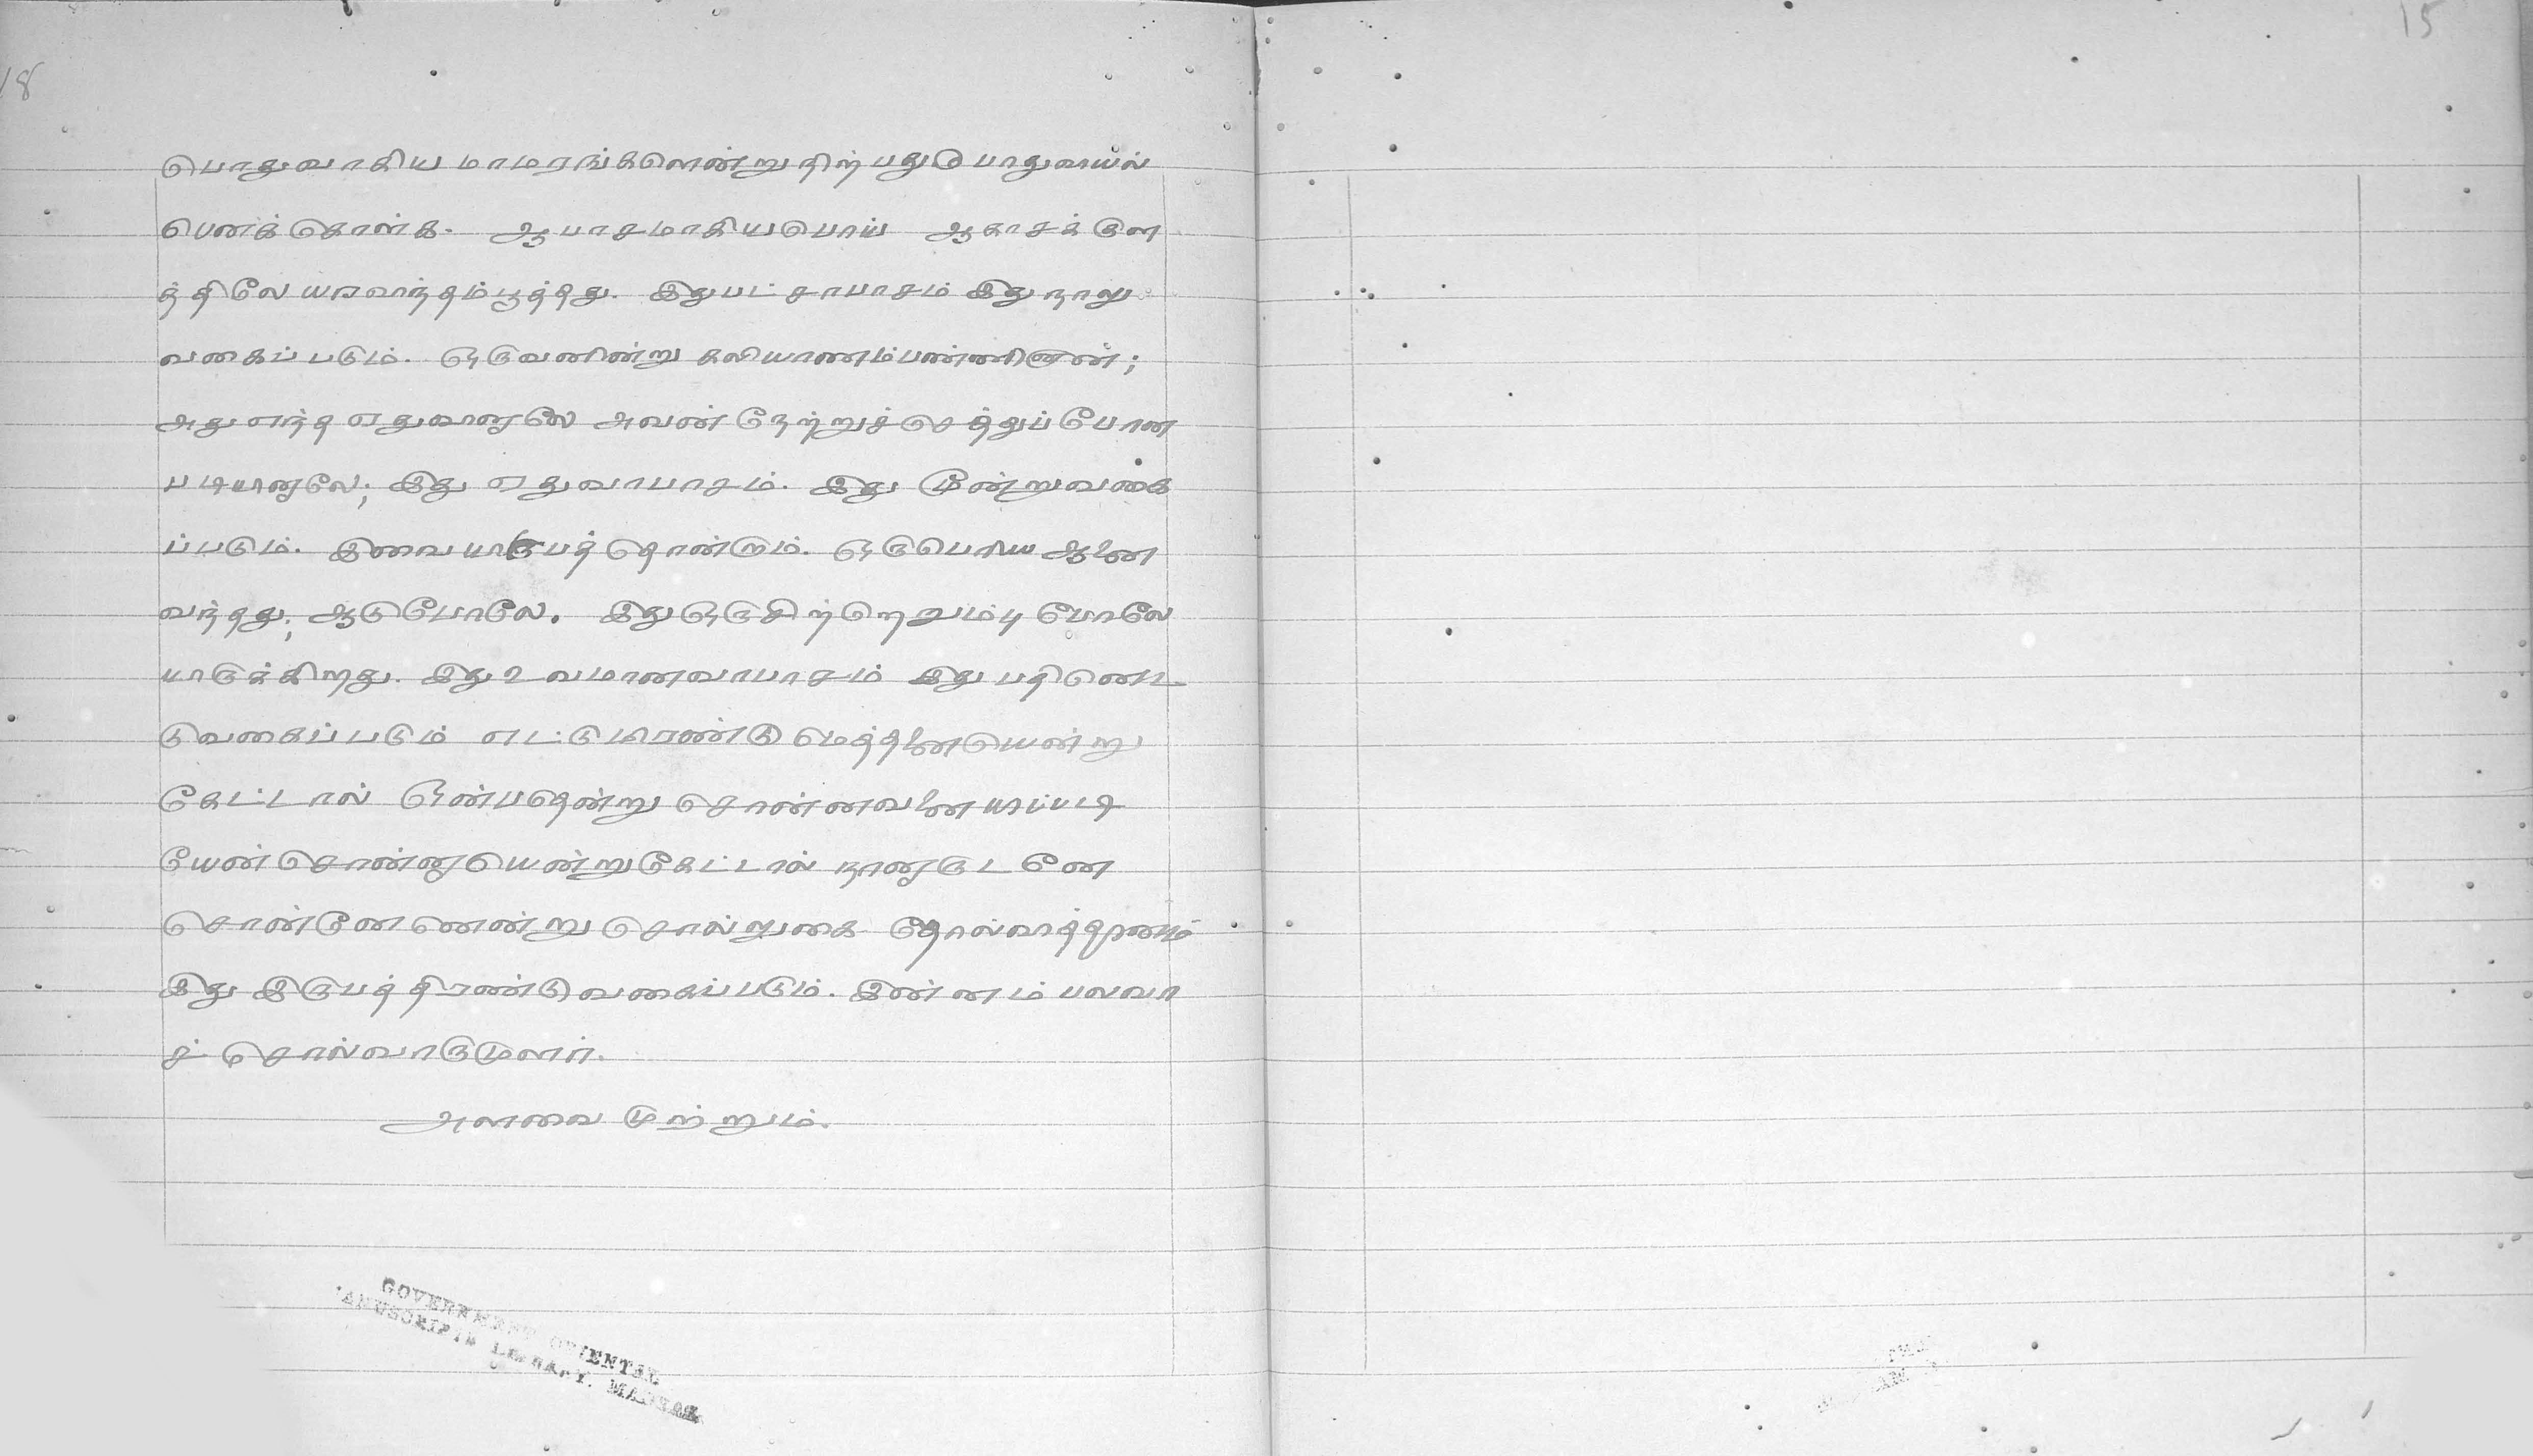 18
15
பொதுவாகிய மாமரங்களென்று நிற்பது பொதுவியல்
பெனக் கொள்க. ஆபாசமாகியபொய் ஆகாசக் குள
த்திலே யரவிந்தம் பூத்தது. இதுபட்சாபாசம் இது நாலு
வகைப்படும். ஒருவனின்று கலியாணம்பண்ணினான்;
அது எந்த எதுவினாலே அவன் நேற்றுச் செத்துப் போன
படியினாலே; இது எதுவாபாசம். இது மூன்றுவகை
ப்படும். இவை யிருபத்தொன்றும். ஒருபெரிய ஆனை
வந்தது; ஆடுபோலே. இது ஒருசிற்றெறும்பு போலே
யிருக்கிறது. இது உவமானவாபாசம் இது பதினெட்
டுவகைப்படும் எட்டுமிரண்டு மெத்தனையென்று
கேட்டால் ஒன்பதென்று சொன்னவனை யிப்படி
யேன் சொன்னாயென்று கேட்டால் நானாருடனே
சொன்னேனென்று சொல்லுகை தோல்வித்தானம்
இது இருபத்திரண்டு வகைப்படும். இன்னம் பலவா
ச் சொல்வாருமுளர்.
அளவை முற்றும்.
GOVERNMENT ORIENTAL
MANUSCRIPTS LIBRARY. MADRAS